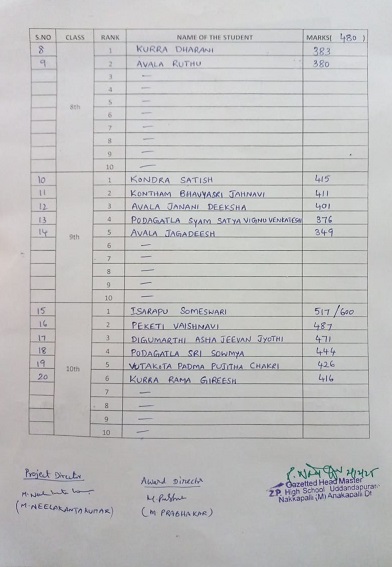 S.NO CLASS RANK NAME OF THE STUDENT MARKS( 480 )
8 1 KURRA DHARANI 383
9 2 AVALA RUTHU 380
3 —
4 —
5 —
8th 6 —
7 —
8 —
9 —
10 —
10 1 KONDRA SATISH 415
11 2 KONTHAM BHAVYASRI JAHNAVI 411
12 3 AVALA JANANI DEEKSHA 401
13 4 PODAGATLA SYAM SATYA VIGNU VENKATESH 376
14 5 AVALA JAGADEESH 349
9th 6 —
7 —
8 —
9 —
10 —
15 1 ISARAPU SOMESWARI 517/600
16 2 PEKETI VAISHNAVI 487
17 3 DIGUMARTHI ASHA JEEVAN JYOTHI 471
18 4 PODAGATLA SRI SOWMYA 444
19 10th 5 VUTAKOTA PADMA PUJITHA CHAKRI 426
20 6 KURRA RAMA GIREESH 416
7 —
8 —
9 —
10 —
Project Director
(M. NEELAKANTA KUMAR)
Award Director
(M PRABHAKAR)
Gazetted Head Master
ZP High School Uddandapuram
Nakkapalli (M) Anakapalli Dt